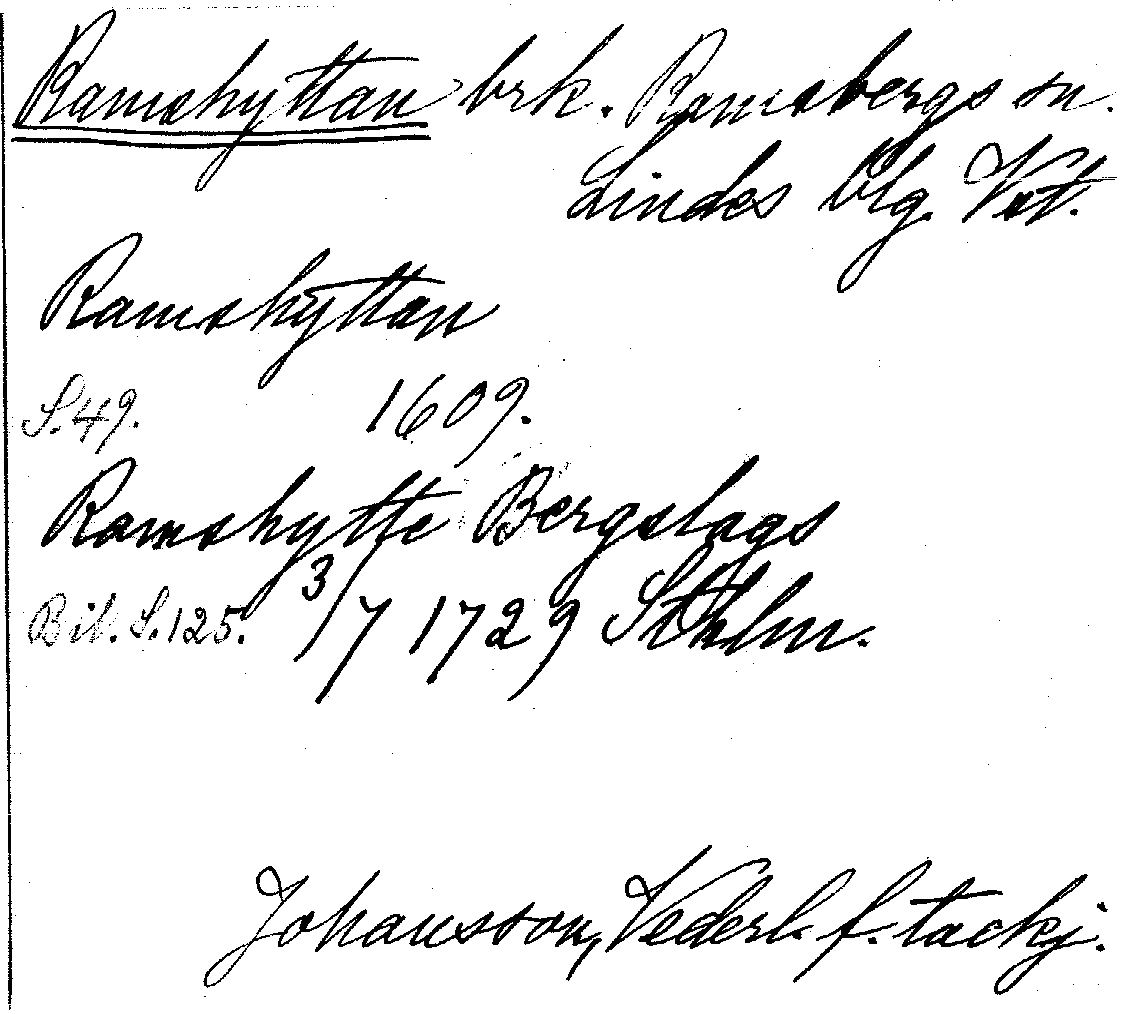 Ramshyttan brk. Ramsbergs sn.
Lindes blg. Vst.
Ramshyttan
S. 49. 1609.
Ramshytte Bergslags
Bil. S. 125. 3/7 1729 Sthlm.
Johansson, Vederl. f. tackj.